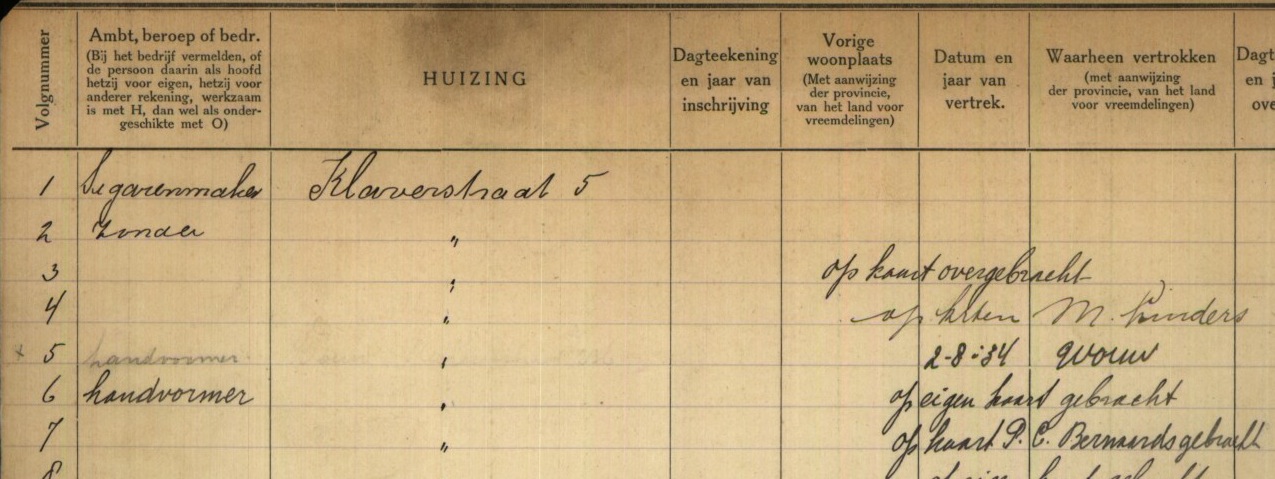 Volgnummer
Ambt, beroep of bedr.
(Bij het bedrijf vermelden, of
de persoon daarin als hoofd
hetzij voor eigen, hetzij voor
anderer rekening, werkzaam
is met H, dan wel als onder-
geschikte met O)
HUIZING
Dagteekening
en jaar van
inschrijving
Vorige
woonplaats
(Met aanwijzing
der provincie,
van het land voor
vreemdelingen)
Datum en
jaar van
vertrek.
Waarheen vertrokken
(met aanwijzing
der provincie, van het land
voor vreemdelingen)
Dagt
en j
ove
1 Sigarenmaker Klaverstraat 5
2 zonder "
3 " op kaart overgebracht
4 " op krten M.
5 handvormer " 2-8-34 Wouw
6 handvormer " op eigen kaart gebracht
7 " op kaart P. C. Bernaards gebracht
8